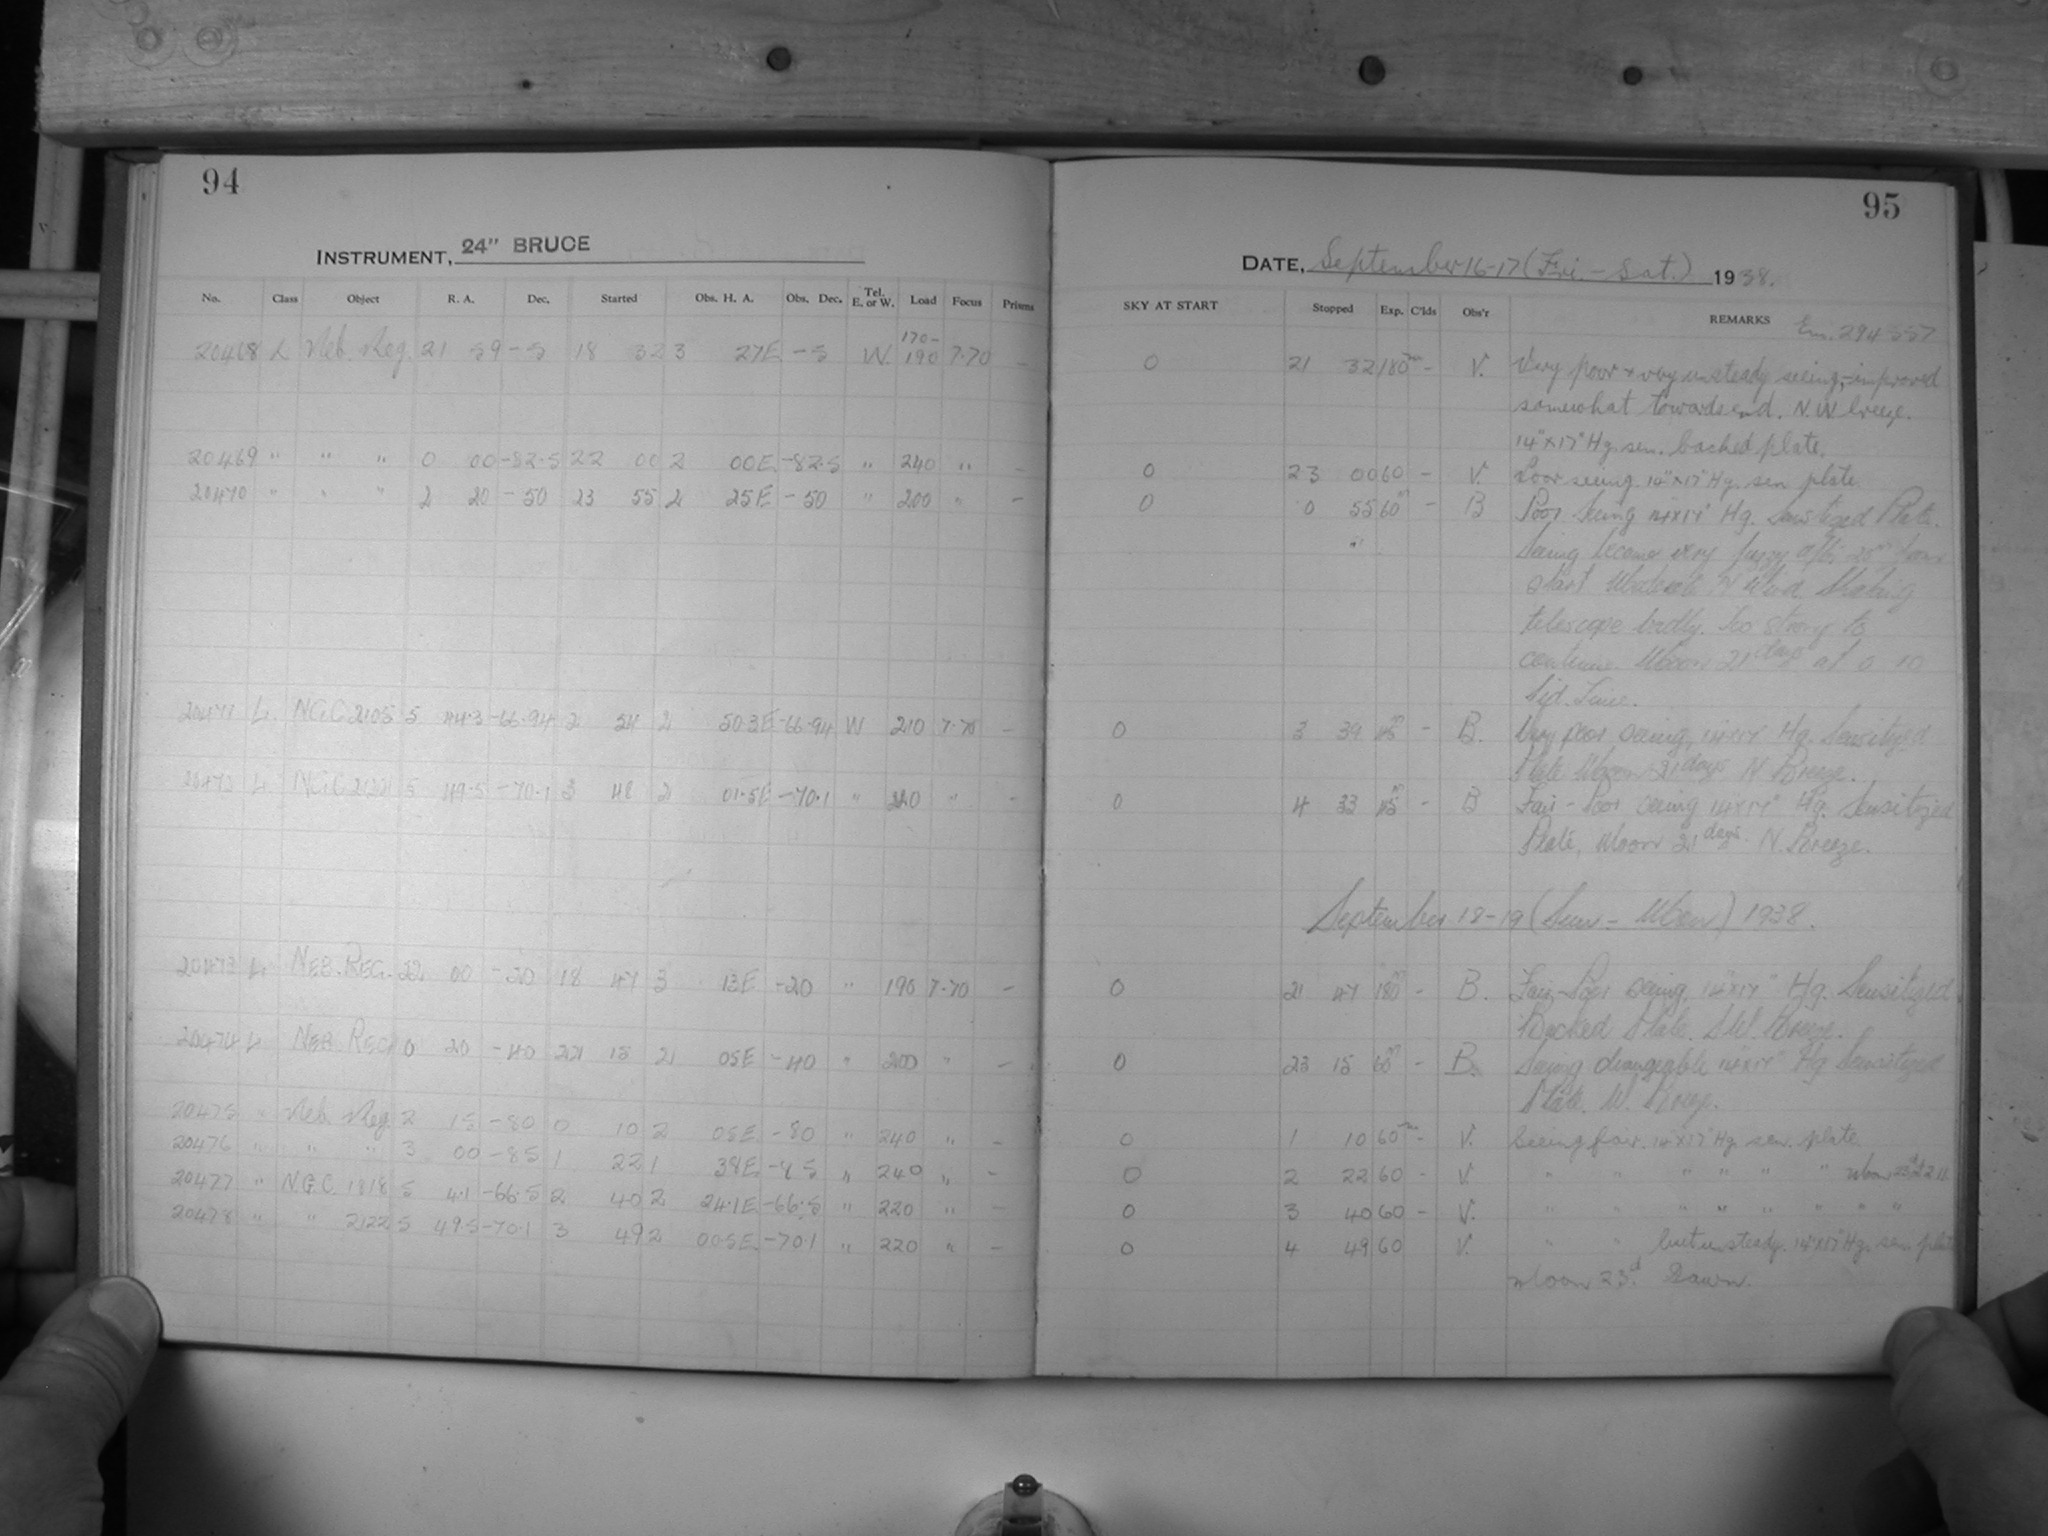 94
INSTRUMENT, 24" BRUCE
No. Class Object R. A. Dec. Started Obs. H. A. Obs. Dec. Tel. E. or W. Load Focus Prisms
20468 L Neb. Reg. 21 59 -5 18 32 3 27E -5 W. 170-190 7.70 -
20469 " " " 0 00 -82.5 22 00 2 00E -82.5 " 240 " -
20470 " " " 2 20 -50 23 55 2 25E -50 " 200 " -
20471 L. NGC 2105 5 44.3 -66.94 2 54 2 50.3E -66.94 W 210 7.70 -
20472 L. NGC 2122 5 49.5 -70.1 3 48 2 01.5E -70.1 " 220 " -
20473 L. NEB. REG. 22 00 -20 18 47 3 13E -20 " 190 7.70 -
20474 L NEB REG 0 20 -40 22 15 2 05E -40 " 200 " -
20475 " Neb. Reg 2 15 -80 0 10 2 05E -80 " 240 " -
20476 " " " 3 00 -85 1 22 1 38E -85 " 240 " -
20477 " N.G.C. 1818 5 4.1 -66.5 2 40 2 24.1E -66.5 " 220 " -
20478 " " 2122 5 49.5 -70.1 3 49 2 00.5E -70.1 " 220 " -
95
DATE, September 16-17 (Fri. - Sat.) 1938.
SKY AT START Stopped Exp. C'lds Obs'r REMARKS Em. 294557
0 21 32 180m - V. Very poor & very unsteady seeing, - improved
somewhat towards end. N.W breeze.
14"x17" Hg. sen. backed plate.
0 23 00 60 - V. Poor seeing. 14"x17" Hg. sen. plate
0 0 55 60m - B Poor Seeing 14x17" Hg. Sensitized Plate.
Seeing became very fuzzy after 25m from
start N Wind Shaking
telescope badly. Too strong to
continue. Moon 21 days at 0 10
Sid. Time.
0 3 39 45m - B. Very poor seeing, 14x17" Hg. Sensitized
Plate Moon 21 days N Breeze.
0 4 33 45m - B Fair - Poor seeing 14x17" Hg. Sensitized
Plate, Moon 21 days. N. Breeze.
September 18-19 (Sun - Mon) 1938.
0 21 47 180m - B. Fair-Poor seeing. 14"x17" Hg. Sensitized
Backed Plate. S.W. Breeze.
0 23 15 60m - B. Seeing changeable 14x17" Hg Sensitized
Plate. W. Breeze.
0 1 10 60m - V. Seeing fair. 14"x17" Hg. sen. plate
0 2 22 60 - V. " " " " " " Moon 23d
0 3 40 60 - V. " " " " " " " "
0 4 49 60 V. " " but unsteady. 14"x17" Hg. sen. plate
Moon 23d. Dawn.